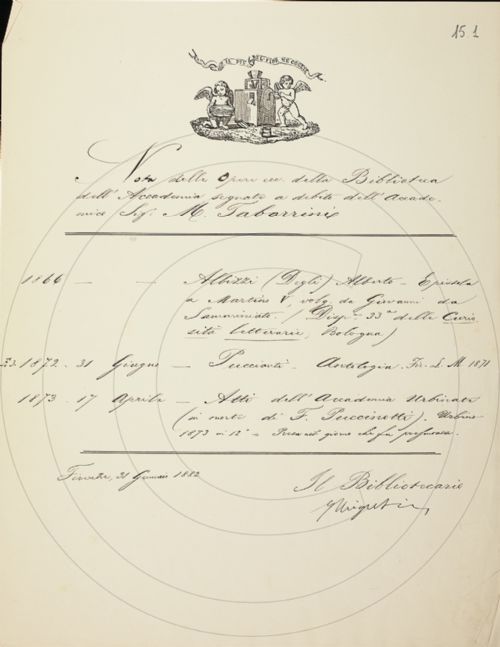 151
IL PIÙ BEL FIOR NE COGLIE
Nota delle Opere ecc. della Biblioteca
dell'Accademia segnate a debito dell'Accade-
mico Sig. M. Tabarrini
1866 — — Albizzi (Degli) Alberto — Epistola
a Martino V, volg. da Giovanni da
Samminiato. (Disp. 33a delle Curio
sità letterarie, Bologna)
1872 - 31 Giugno — Puccianti — Antologia. Fir. L. M. 1871
1873 - 17 Aprile — Atti dell'Accademia Urbinate
(in morte di F. Puccinotti). Urbino
1873 in 12° —
Firenze, 21 Gennaio 1882
Il Bibliotecario